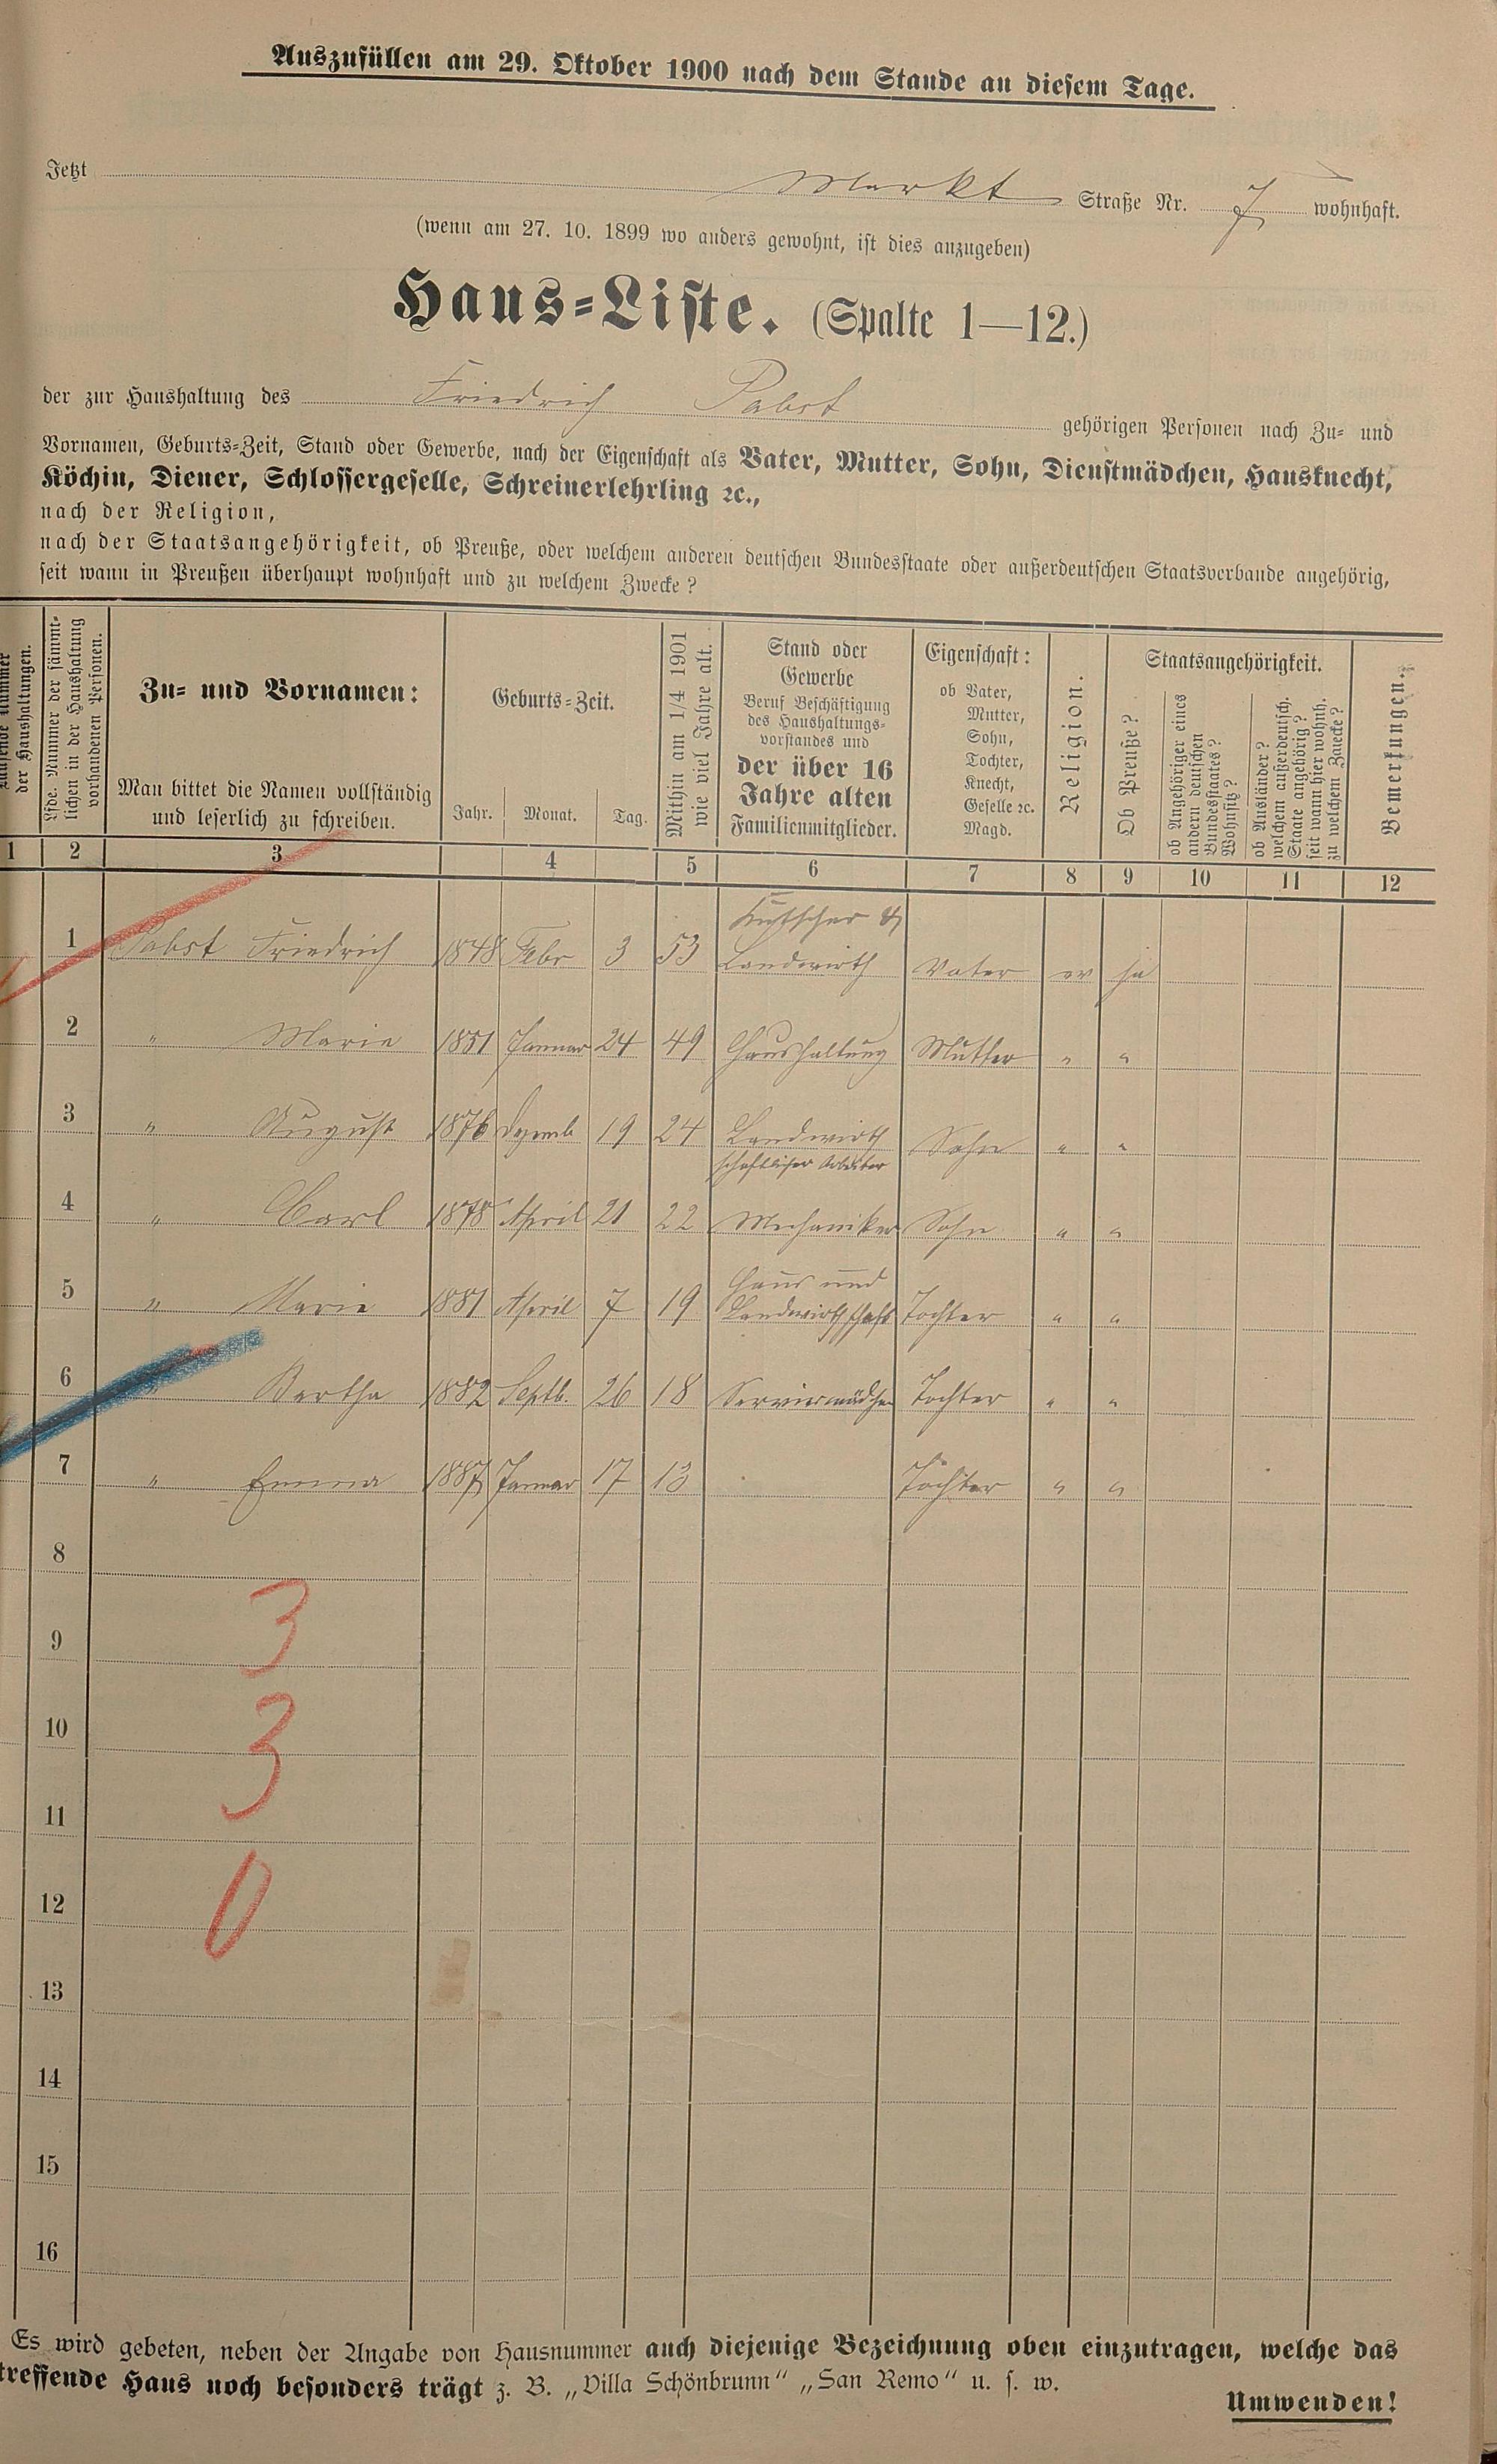 Auszufüllen am 29. Oktober 1900 nach dem Stande an diesem Tage.
Jetzt Markt Straße Nr. 7 wohnhaft.
(wenn am 27. 10. 1899 wo anders gewohnt, ist dies anzugeben)
Haus-Liste. (Spalte 1—12.)
der zur Haushaltung des Friedrich Pabst gehörigen Personen nach Zu- und
Vornamen, Geburts-Zeit, Stand oder Gewerbe, nach der Eigenschaft als Vater, Mutter, Sohn, Dienstmädchen, Hausknecht,
Köchin, Diener, Schlossergeselle, Schreinerlehrling ꝛc.,
nach der Religion,
nach der Staatsangehörigkeit, ob Preuße, oder welchem anderen deutschen Bundesstaate oder außerdeutschen Staatsverbande angehörig,
seit wann in Preußen überhaupt wohnhaft und zu welchem Zwecke?
Laufende Nummer
der Haushaltungen.
Lfde. Nummer der sämmt-
lichen in der Haushaltung
vorhandenen Personen.
Zu- und Vornamen:
Man bittet die Namen vollständig
und leserlich zu schreiben.
Geburts-Zeit.
Jahr. Monat. Tag.
Mithin am 1/4 1901
wie viel Jahre alt.
Stand oder
Gewerbe
Beruf Beschäftigung
des Haushaltungs-
vorstandes und
der über 16
Jahre alten
Familienmitglieder.
Eigenschaft:
ob Vater,
Mutter,
Sohn,
Tochter,
Knecht,
Geselle ꝛc.
Magd.
Religion.
Staatsangehörigkeit.
Ob Preuße?
ob Angehöriger eines
andern deutschen
Bundesstaates?
Wohnsitz?
ob Ausländer?
welchem außerdeutsch.
Staate angehörig?
seit wann hier wohnh.
zu welchem Zwecke?
Bemerkungen.
1 2 3 4 5 6 7 8 9 10 11 12
Kutscher &
1 Pabst Friedrich 1848 Febr 3 53 Landwirth Vater ev ja
2 " Marie 1851 Januar 24 49 Haushaltung Mutter " "
3 " August 1876 Dezemb 19 24 Landwirth Sohn " "
schaftlicher Arbeiter
4 " Carl 1878 April 21 22 Mechaniker Sohn " "
Haus und
5 " Marie 1881 April 7 19 Landwirthschaft Tochter " "
6 " Bertha 1882 Septb. 26 18 Serviermädchen Tochter " "
7 " Emma 1887 Januar 17 13 Tochter " "
8
9 3
10 3
11
12 0
13
14
15
16
Es wird gebeten, neben der Angabe von Hausnummer auch diejenige Bezeichnung oben einzutragen, welche das
treffende Haus noch besonders trägt z. B. „Villa Schönbrunn“ „San Remo“ u. s. w.
Umwenden!